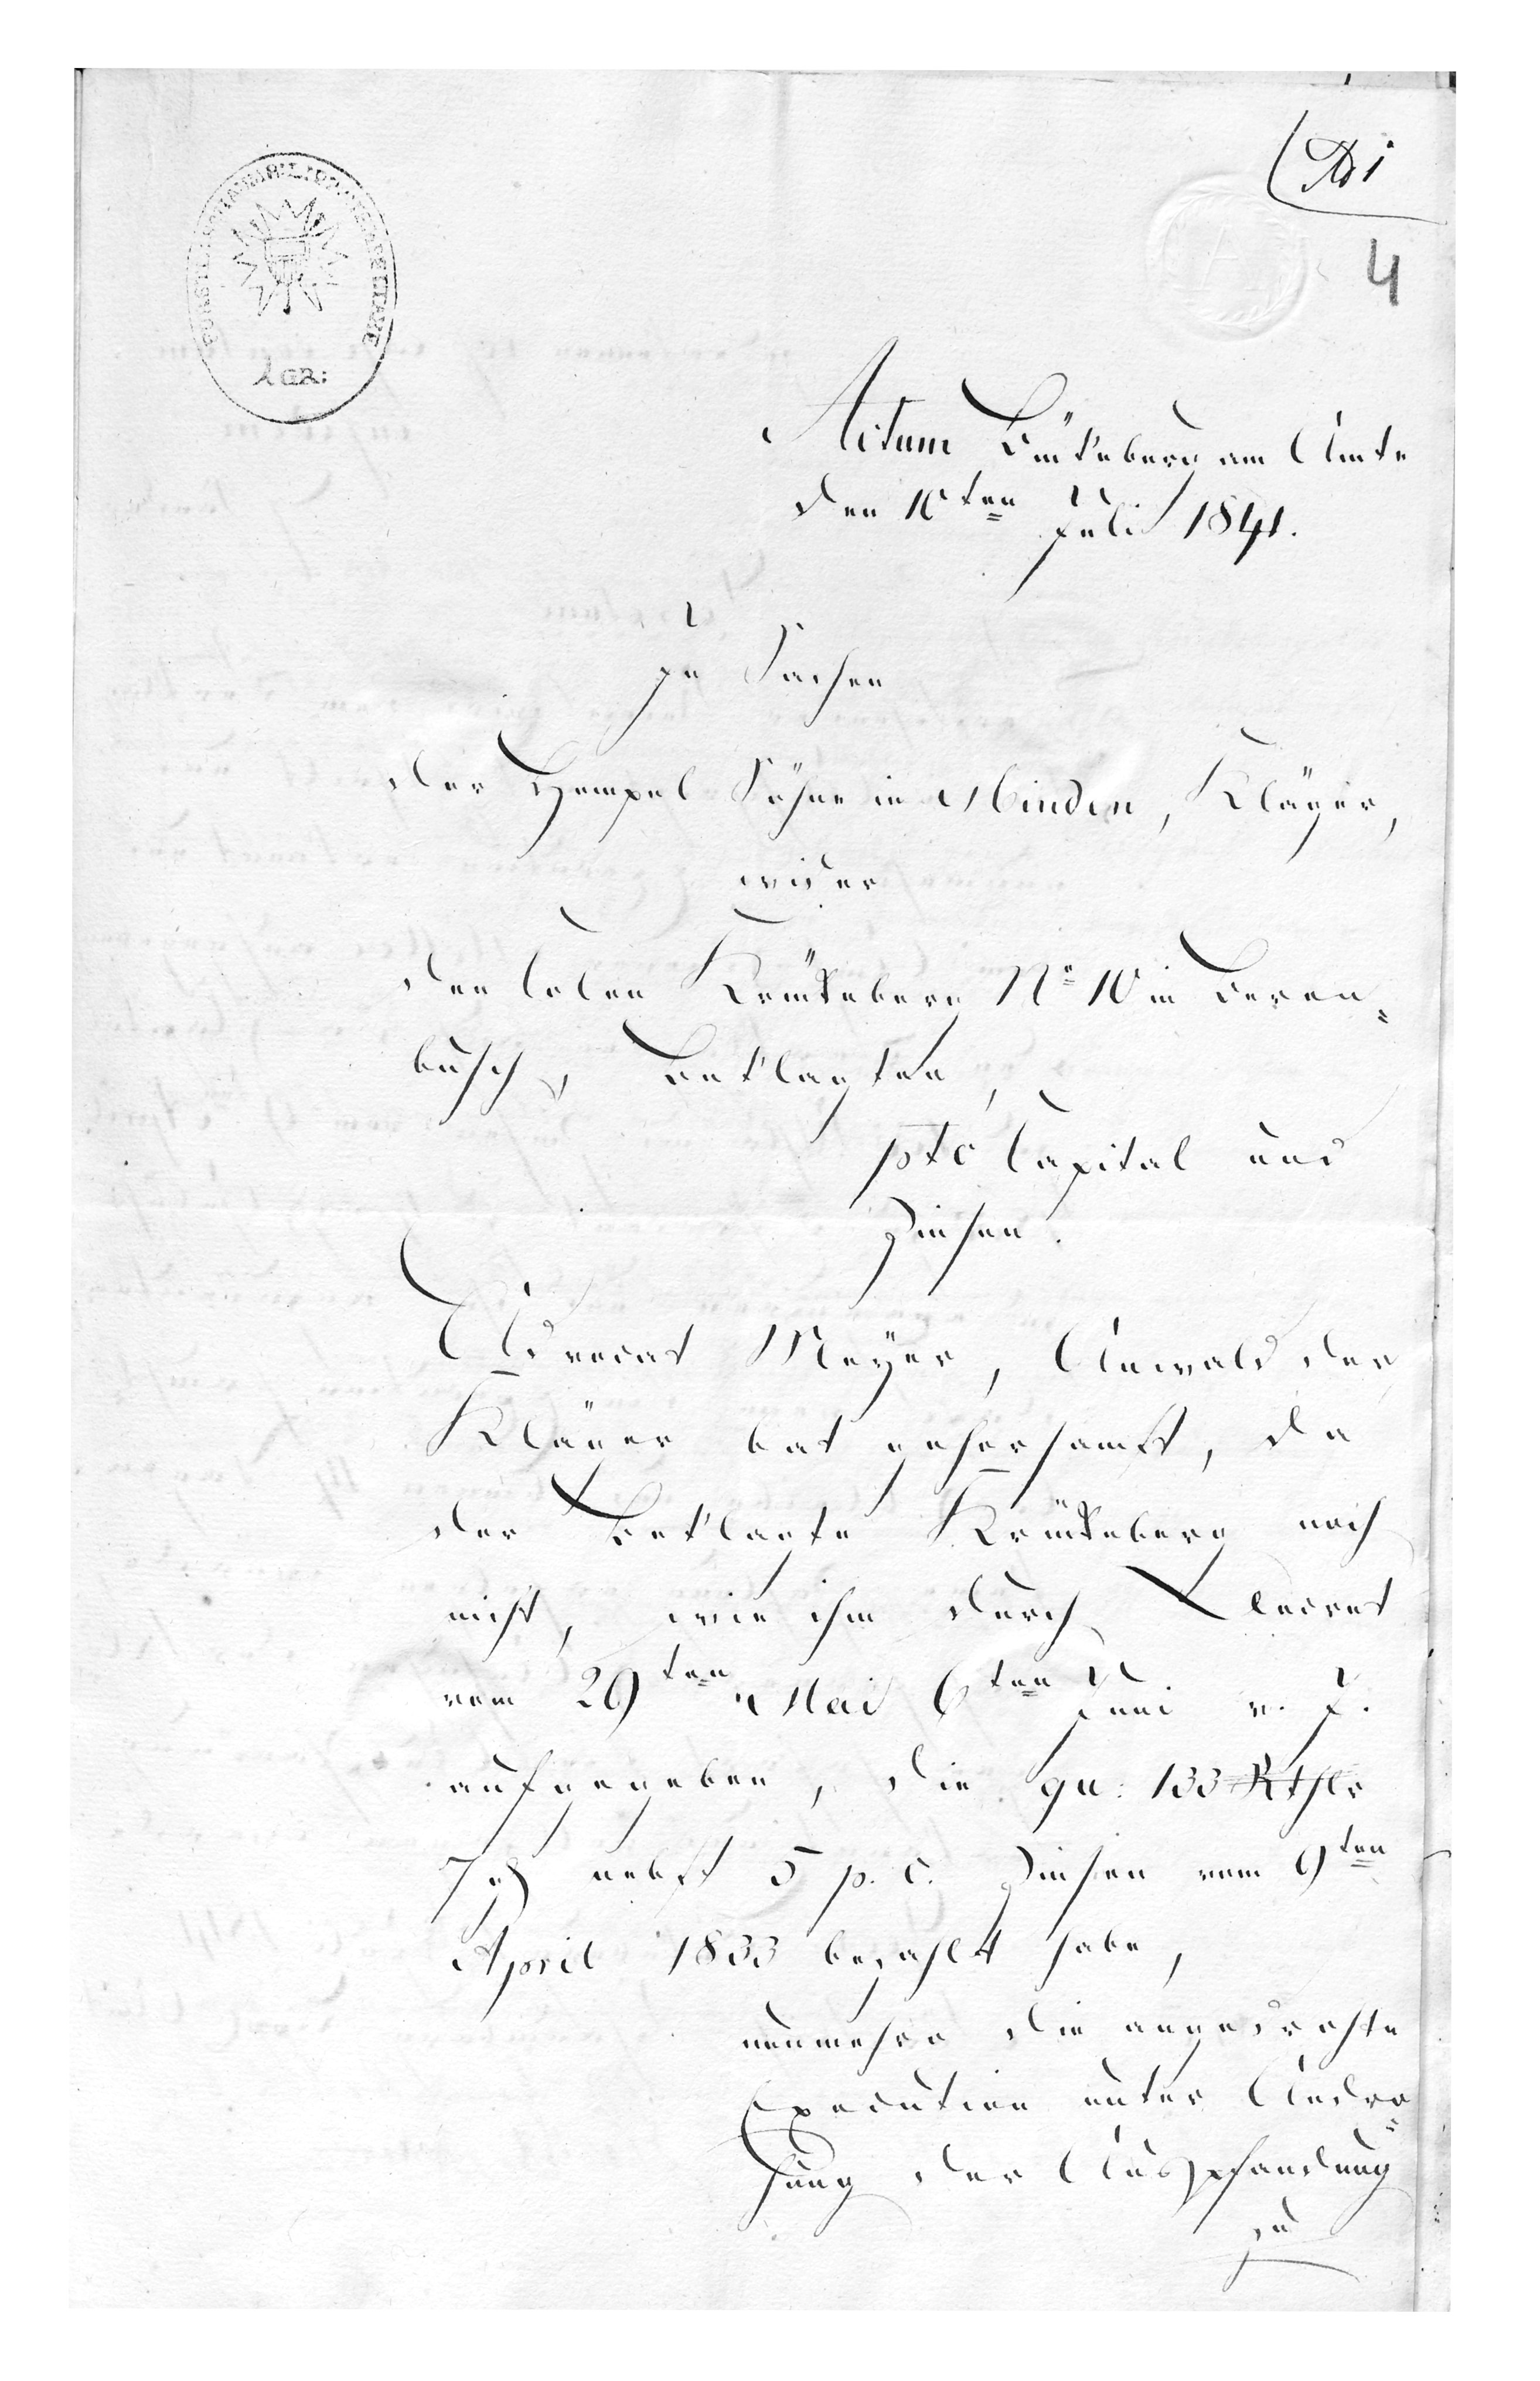 4
Actum Bückeburg am Amte
den 10ten Juli 1841.
In Sachen
der Hempel Söhne in Minden, Kläger,
wider
den Colon Krückeberg No 10 in Beren=
busch, Beklagten,
pto Capital und
Zinsen.
Advocat Meÿer, Anwald der
Kläger bat gehorsamst, da
der Beklagte Krückeberg noch
nicht, wie ihm durch Decret
vom 29ten Mai 6ten Juni v. J.
aufgegeben, die qu: 133 Rthlr
7 nebst 5 p. C. Zinsen vom 9ten
April 1833 bezahlt habe,
nunmehro die angedrohte
Execution unter Andro=
hung der Auspfandung
zu